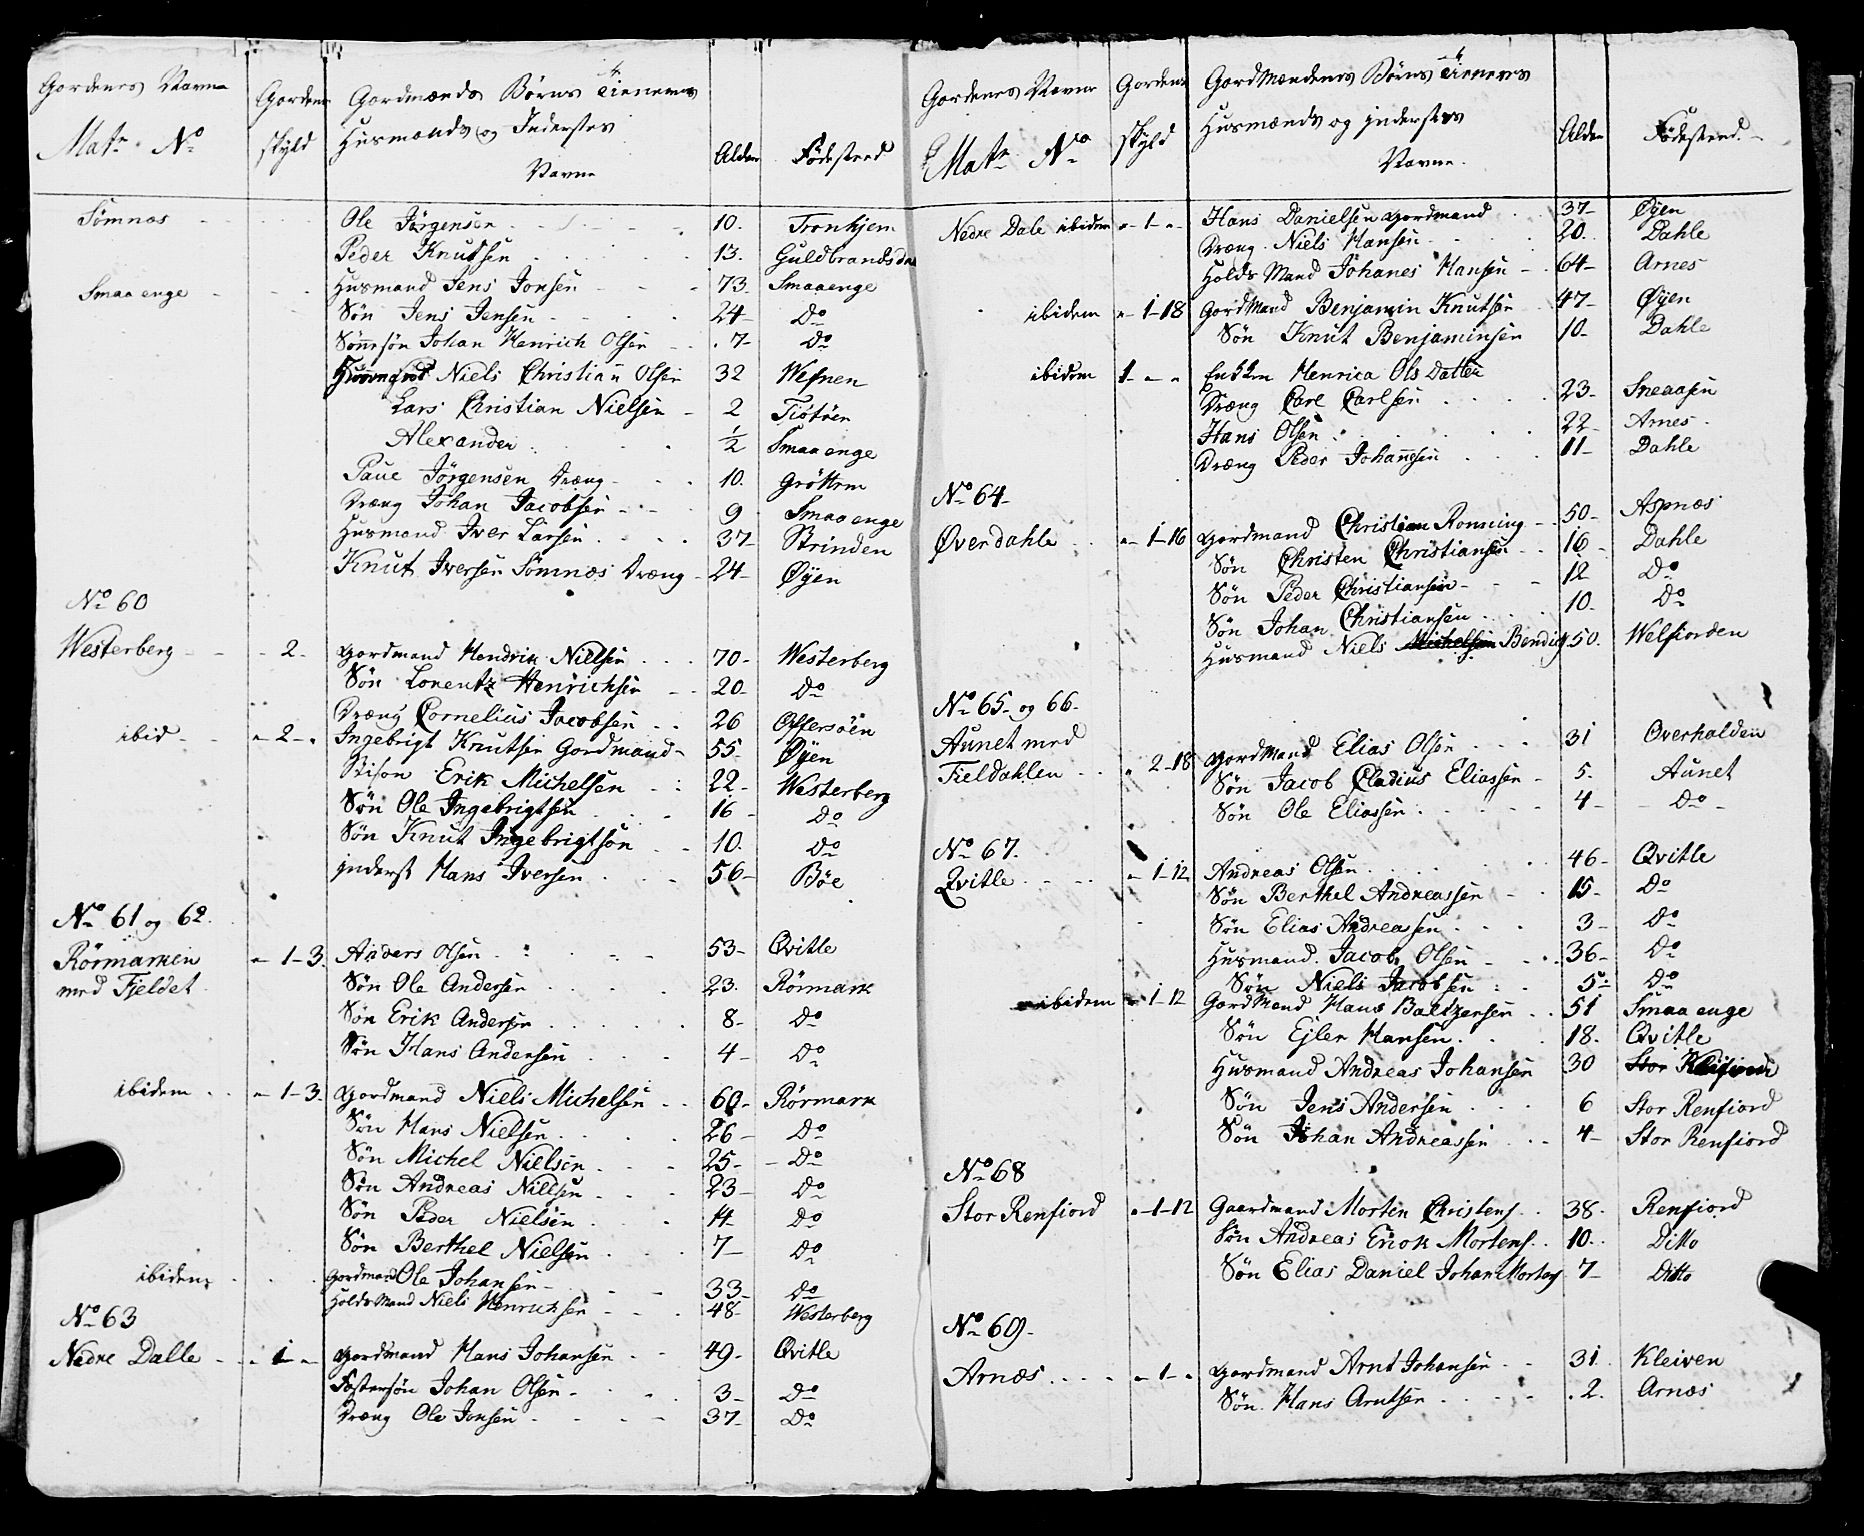 Gordenes Navne Gordens Gordmænds Børns Tieneres
Mat: No skyld Husmænds og Inderstes Alder Fødestred
Navne
Sømnæs Ole Jörgensen 10. Tronhjem
Peder Knudsen 13. Guldbrandsdal
Smaaenge Husmand Jens Jonsen 73 Smaaenge
Søn Jens Jensen 24 Do
Sønnesøn Johan Henrich Olsen 7 Do
Niels Christian Olsen 32 Wefnen
Lars Christian Nielsen 2 Tiøtöen
Alexander ½ Smaaenge
Paue Jörgensen Dræng 10. Gröttem
Dræng Johan Jacobsen 9 Smaaenge
Husmand Iver Larsen 37 Strinden
Knut Iversen Sömnæs Dræng 24 Øÿen
No 60
Westerberg 2 Gordmand Hendrik Nielsen 70 Westerberg
Søn Lorentz Henrichsen 20 Do
Dræng Cornelius Jacobsen 26 Offersöen
ibid 2 Ingebrigt Knutsen Gordmand 55 Øÿen
Stisøn Erik Michelsen 22 Westerberg
Søn Ole Ingebrigtsen 16 Do
Søn Knut Ingebrigtsøn 10. Do
Inderst Hans Iversen 56 Böe
No 61 og 62.
Rörmarken 1-3. Anders Olsen 53 Qvitle
med Fjeldet Søn Ole Andersen 23. Rörmark
Søn Erik Andersen 8 Do
Søn Hans Andersen 4 Do
ibidem 1-3. Gordmand Niels Michelsen 60 Rörmark
Søn Hans Nielsen 26 Do
Søn Michel Nielsen 25 Do
Søn Andreas Nielsen 23 Do
Søn Peder Nielsen 14 Do
Søn Berthel Nielsen 7 Do
ibidem Gordmand Ole Johansen 33 Do
Holds Mand Niels Henrichsen 48 Westerberg
No 63
Nedre Dalle 1 Gordmand Hans Johansen 49 Qvitle
Fostersøn Johan Olsen 3 Do
Dræng Ole Jonsen 37 Do
Gordenes Navne Gordens Gordmændenes Børns Tieneres
Mat: No skyld Husmænds og Inderstes Alder Fødestred
Navne
Nedre Dale ibidem 1 Hans Danielsen Gordmand 37 Øÿen
Dræng Niels Hansen 20. Dahle
Holds Mand Johanes Hansen 64 Arnes
ibidem 1-18 Gordmand Benjamin Knutsen 47 Øÿen
Søn Knut Benjaminsen 10 Dahle
ibidem 1 Enken Henrica Ols Datter
Dræng Carl Carlsen 23 Sneaasen
Hans Olsen 22 Arnes
Dræng Peder Johannesen 11 Dahle
No 64
Øverdahle 1-16 Gordmand Christian Ronning 50 Aspnæs
Søn Christen Christiansen 16 Dahle
Søn Peder Christiansen 12 Do
Søn Johan Christiansen 10 Do
Husmand Niels Michelsen Bendig 50. Welfiorden
No 65 og 66
Aunet med
Fieldahlen 2-18 Gordmand Elias Olsen 31 Overhalden
Søn Jacob Cladius Eliassen 5. Aunet
Søn Ole Eliassen 4 Do
No 67.
Qvitle 1-12 Andreas Olsen 46 Qvitle
Søn Berthel Andreassen 15 Do
Søn Elias Andreasen 3 Do
Husmand Jacob Olsen 36 Do
Søn Niels Jacobsen 5 Do
ibidem 1-12 Gordmand Hans Baltzersen 51 Smaaenge
Søn Ejler Hansen 18. Qvitle
Husmand Andreas Johansen 30 Stor
Søn Jens Andersen 6 Stor Renfiord
Søn Johan Andreassen 4 Stor Renfiord
No 68
Stor Renfiord 1-12 Gaardmand Morten Christens. 38 Renfiord
Søn Andreas Erick Mortens. 10. Ditto
Søn Elias Daniel Johan Mortens 7 Ditto
No 69
Arnæs 1 Gordmand Arnt Johansen 31 Kleiven
Søn Hans Arntsen 2. Arnæs